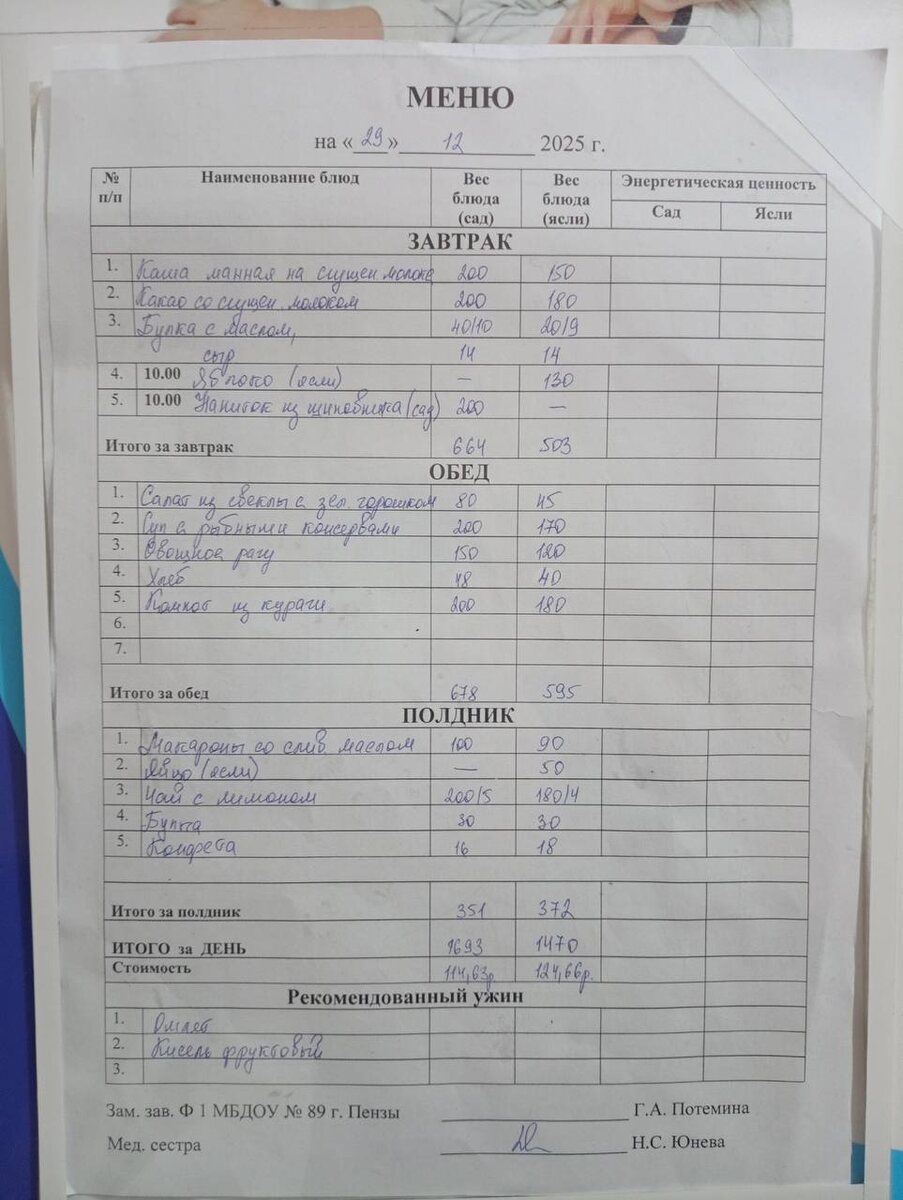 МЕНЮ
на «29» 12 2025 г.
№ п/п Наименование блюд Вес блюда (сад) Вес блюда (ясли) Энергетическая ценность
Сад Ясли
ЗАВТРАК
1. Каша манная на сгущен молоке 200 150
2. Какао со сгущен. молоком 200 180
3. Булка с маслом, 40/10 20/9
сыр 14 14
4. 10.00 Яблоко (ясли) — 130
5. 10.00 Напиток из шиповника (сад) 200 —
Итого за завтрак 664 503
ОБЕД
1. Салат из свеклы с зел. горошком 80 45
2. Суп с рыбными консервами 200 170
3. Овощное рагу 150 120
4. Хлеб 48 40
5. Компот из кураги 200 180
6.
7.
Итого за обед 678 595
ПОЛДНИК
1. Макароны со слив. маслом 100 90
2. Яйцо (ясли) — 50
3. Чай с лимоном 200/5 180/4
4. Булка 30 30
5. Конфета 16 18
Итого за полдник 351 372
ИТОГО за ДЕНЬ 1693 1470
Стоимость 114,63р 124,66р.
Рекомендованный ужин
1. Омлет
2. Кисель фруктовый
3.
Зам. зав. Ф 1 МБДОУ № 89 г. Пензы Г.А. Потемина
Мед. сестра Н.С. Юнева